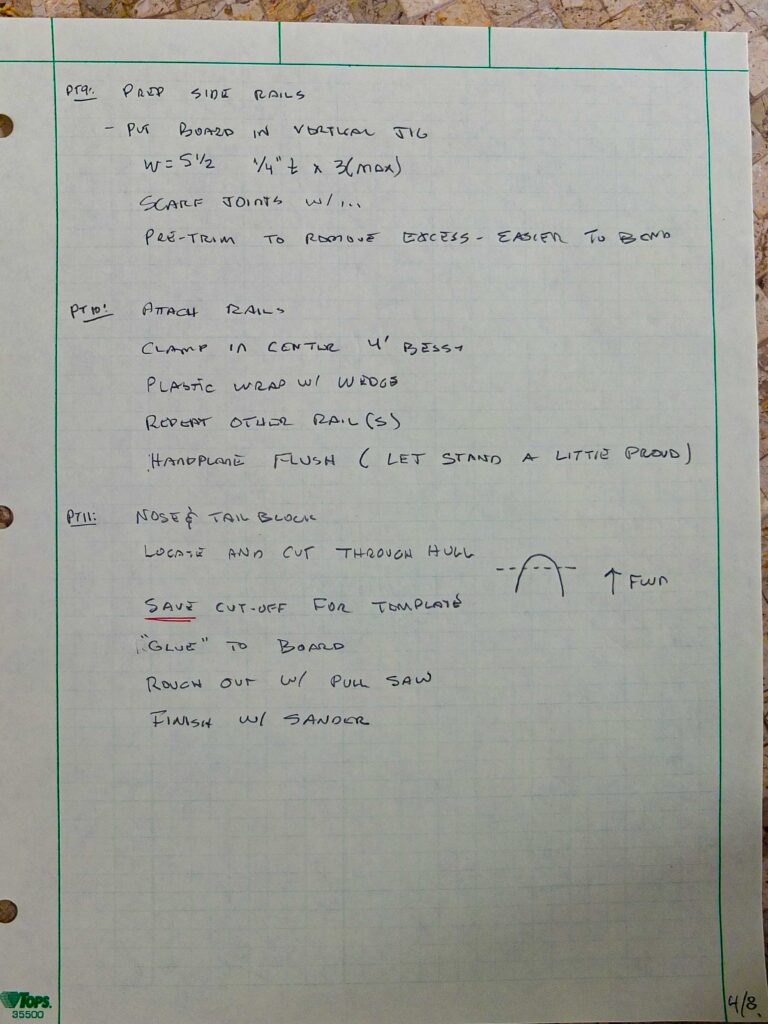 PT9: PREP SIDE RAILS
- PUT BOARD IN VERTICAL JIG
W = 5 1/2 1/4" t x 3(MAX)
SCARF JOINTS W/...
PRE-TRIM TO REMOVE EXCESS - EASIER TO BEND
PT10: ATTACH RAILS
CLAMP IN CENTER 4'
PLASTIC WRAP W/ WEDGE
REPEAT OTHER RAIL(S)
HANDPLANE FLUSH (LET STAND A LITTLE PROUD)
PT11: NOSE & TAIL BLOCK
LOCATE AND CUT THROUGH HULL
↑ FWD
SAVE CUT-OFF FOR TEMPLATE
"GLUE" TO BOARD
ROUGH OUT W/ PULL SAW
FINISH W/ SANDER
TOPS.
35500
4/8